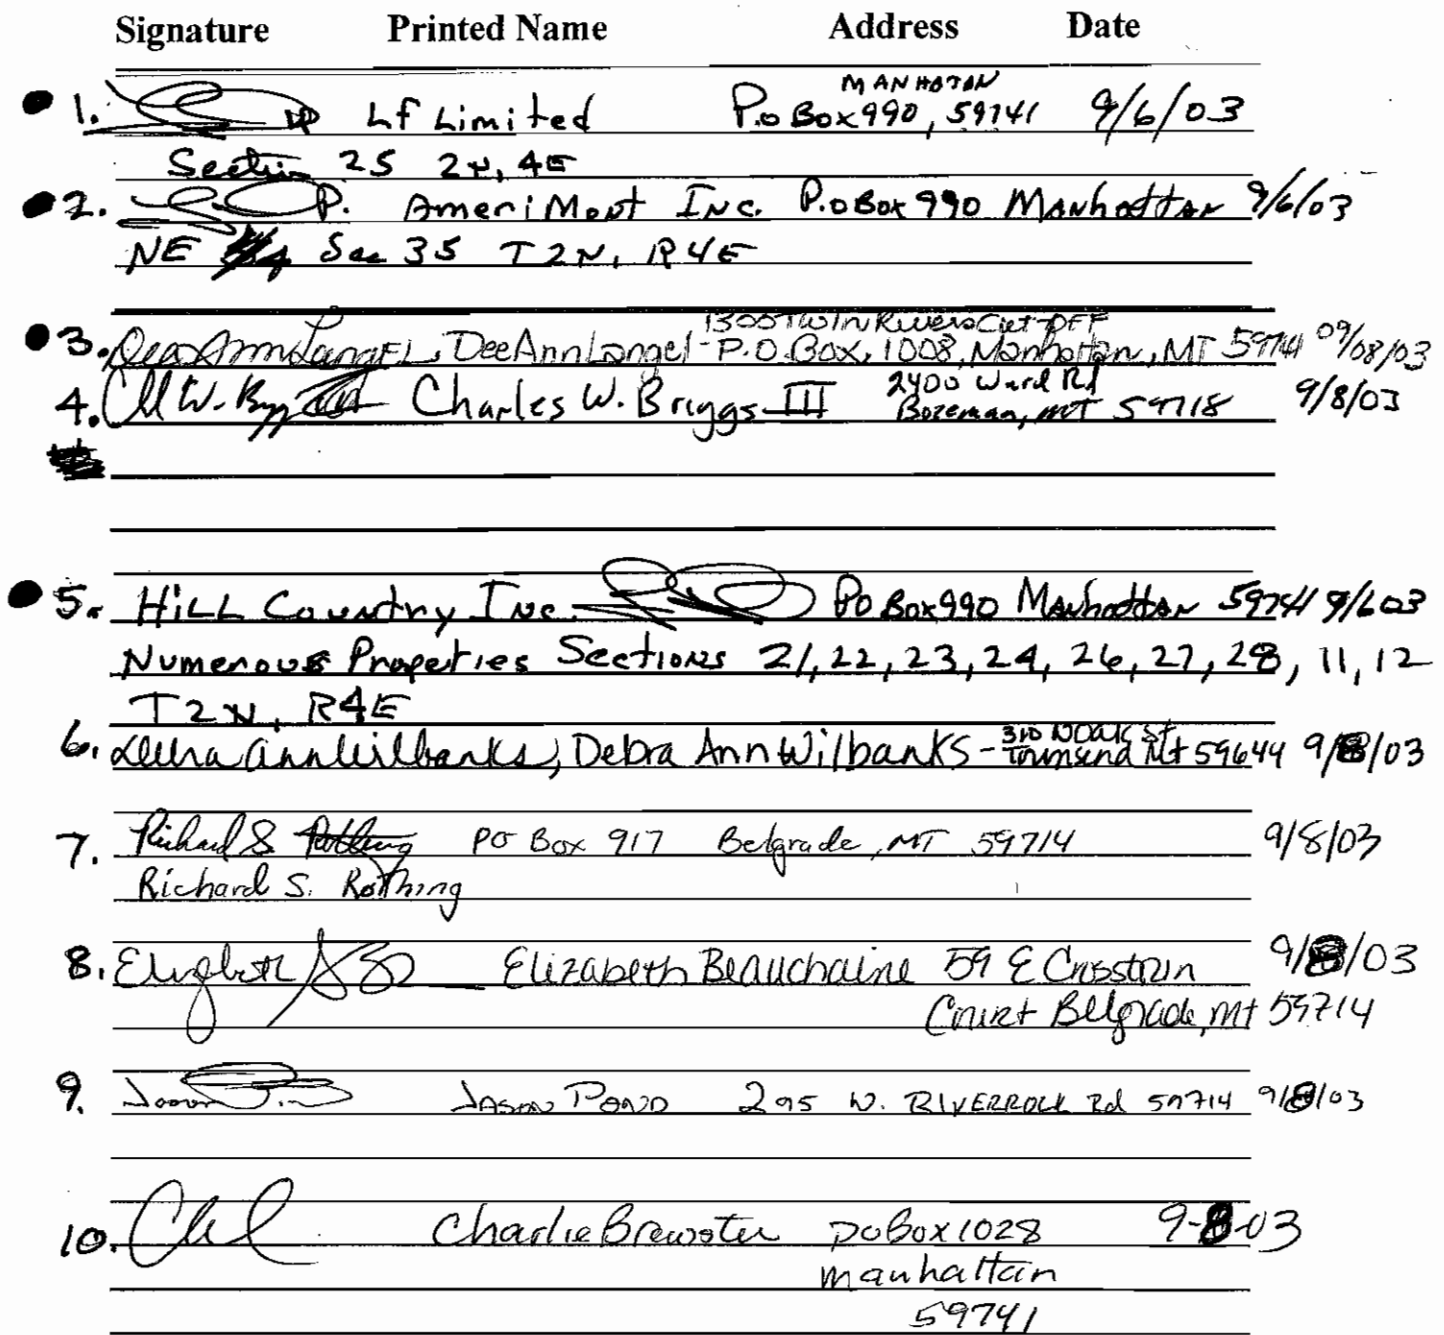 Signature Printed Name Address Date
MANHATAN
1. Lf Limited P.o Box 990, 59741 9/6/03
Section 25 2N, 4E
2. P. AmeriMont Inc. P.o Box 990 Manhattan 9/6/03
NE Sec 35 T2N, R4E
1300 Twin Rivers Cut-Off
3. DeeAnn Langel, DeeAnn Langel - P.O. Box, 1008, Manhattan, MT 59741 09/08/03
2400 Ward Rd
4. Charles W. Briggs III Bozeman, MT 59718 9/8/03
5. Hill Country Inc. Po Box 990 Manhattan 59741 9/6/03
Numerous Properties Sections 21, 22, 23, 24, 26, 27, 28, 11, 12
T2N, R4E
310 N Oak St
6. Debra Ann Wilbanks, Debra Ann Wilbanks - Townsend Mt 59644 9/8/03
7. Richard S. Rothing PO Box 917 Belgrade, MT 59714 9/8/03
Richard S. Rothing
8. Elizabeth Elizabeth Beauchaine 59 E Crosstrin 9/8/03
Court Belgrade, Mt 59714
9. Jason Jason Pond 295 W. Riverrock Rd 59714 9/8/03
10. Charlie Brewster PO Box 1028 9-8-03
manhattan
59741